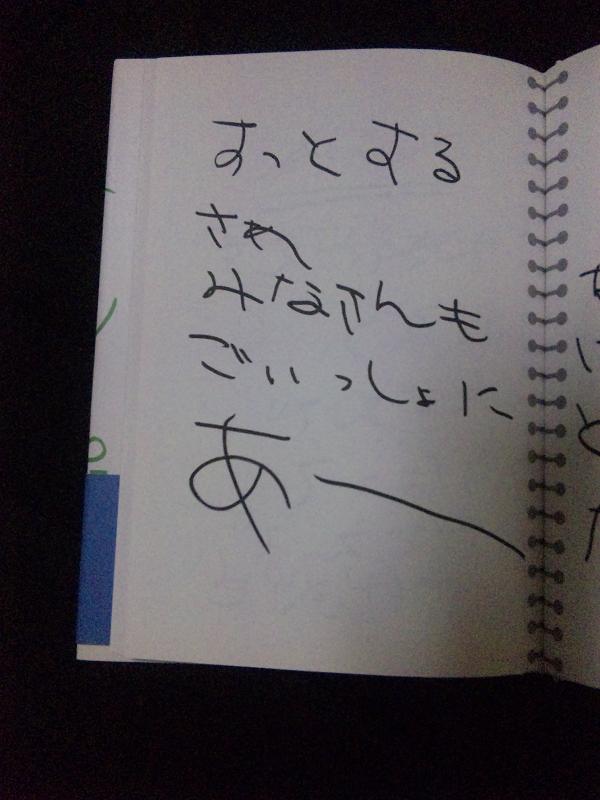 すっとする
さあ
みなさんも
ごいっしょに
あー